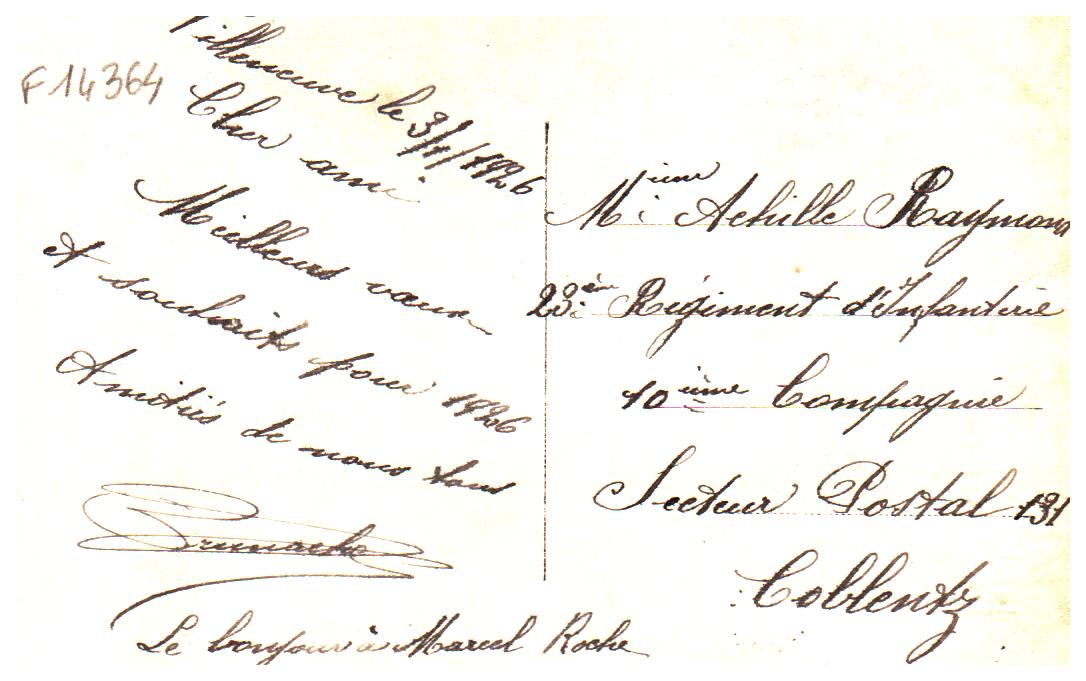 F14364
Villeneuve le 3/1/1926
Cher ami
Meilleurs vœux
et souhaits pour 1926
Amitiés de nous tous
Le bonjour à Marcel Roche
Achille Raymond
23ème Régiment d'Infanterie
10ième Compagnie
Secteur Postal 131
Coblentz